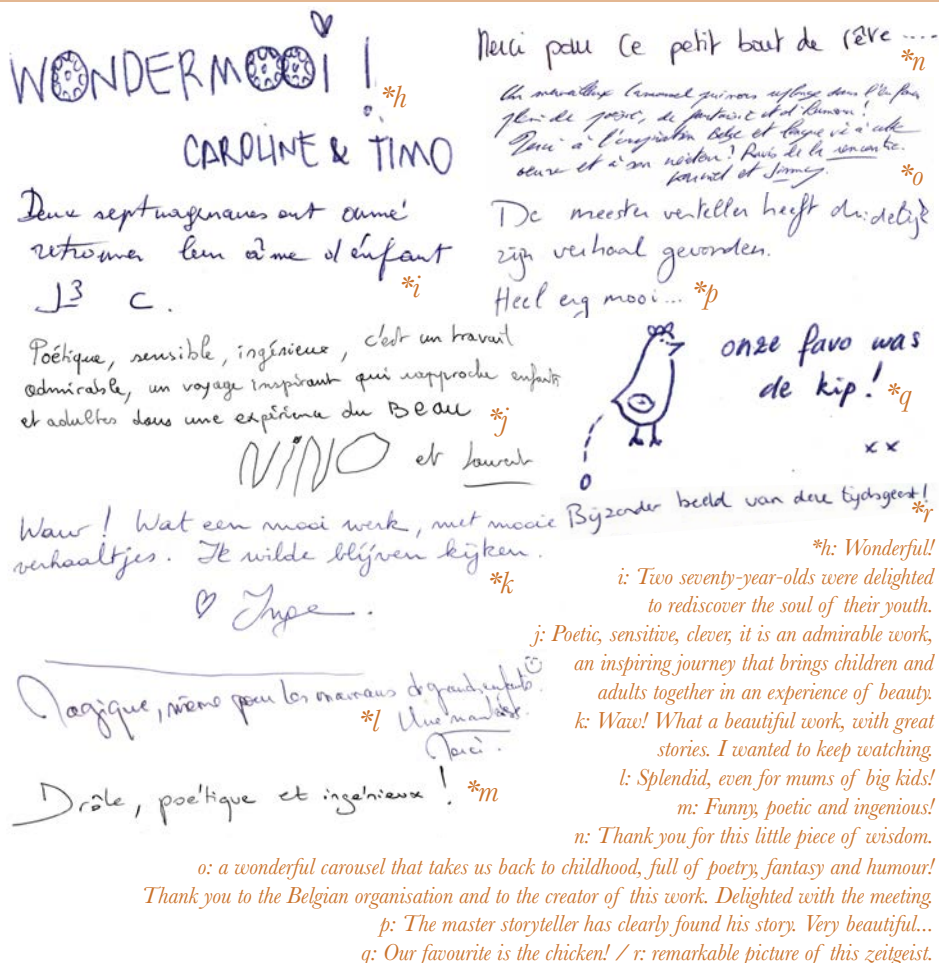 WONDERMOOI !
*h
CAROLINE & TIMO
Deux septuagénaires ont aimé
retrouver leur âme d'enfant
*i
J3 C.
Poétique, sensible, ingénieux, c'est un travail
admirable, un voyage inspirant qui rapproche enfants
et adultes dans une expérience du BEAU
*j
NINO et Laurent
Wauw ! Wat een mooi werk, met mooie
verhaaltjes. Ik wilde blijven kijken.
*k
♡ Inge.
Magique, même pour les mamans de grands enfants.
*l
Une
Merci.
Drôle, poétique et ingénieux !
*m
Merci pour ce petit bout de rêve ....
*n
Un merveilleux carrousel qui nous replonge dans l'enfance
plein de poésie, de fantaisie et d'humour !
Merci à l'organisation belge et à cette
oeuvre et à son ! Ravis de la rencontre.
et
*o
De meester verteller heeft duidelijk
zijn verhaal gevonden.
Heel erg mooi...
*p
onze favo was
de kip !
*q
x x
Bijzonder beeld van deze tijdsgeest !
*r
*h: Wonderful!
i: Two seventy-year-olds were delighted
to rediscover the soul of their youth.
j: Poetic, sensitive, clever, it is an admirable work,
an inspiring journey that brings children and
adults together in an experience of beauty.
k: Waw! What a beautiful work, with great
stories. I wanted to keep watching.
l: Splendid, even for mums of big kids!
m: Funny, poetic and ingenious!
n: Thank you for this little piece of wisdom.
o: a wonderful carousel that takes us back to childhood, full of poetry, fantasy and humour!
Thank you to the Belgian organisation and to the creator of this work. Delighted with the meeting.
p: The master storyteller has clearly found his story. Very beautiful...
q: Our favourite is the chicken! / r: remarkable picture of this zeitgeist.